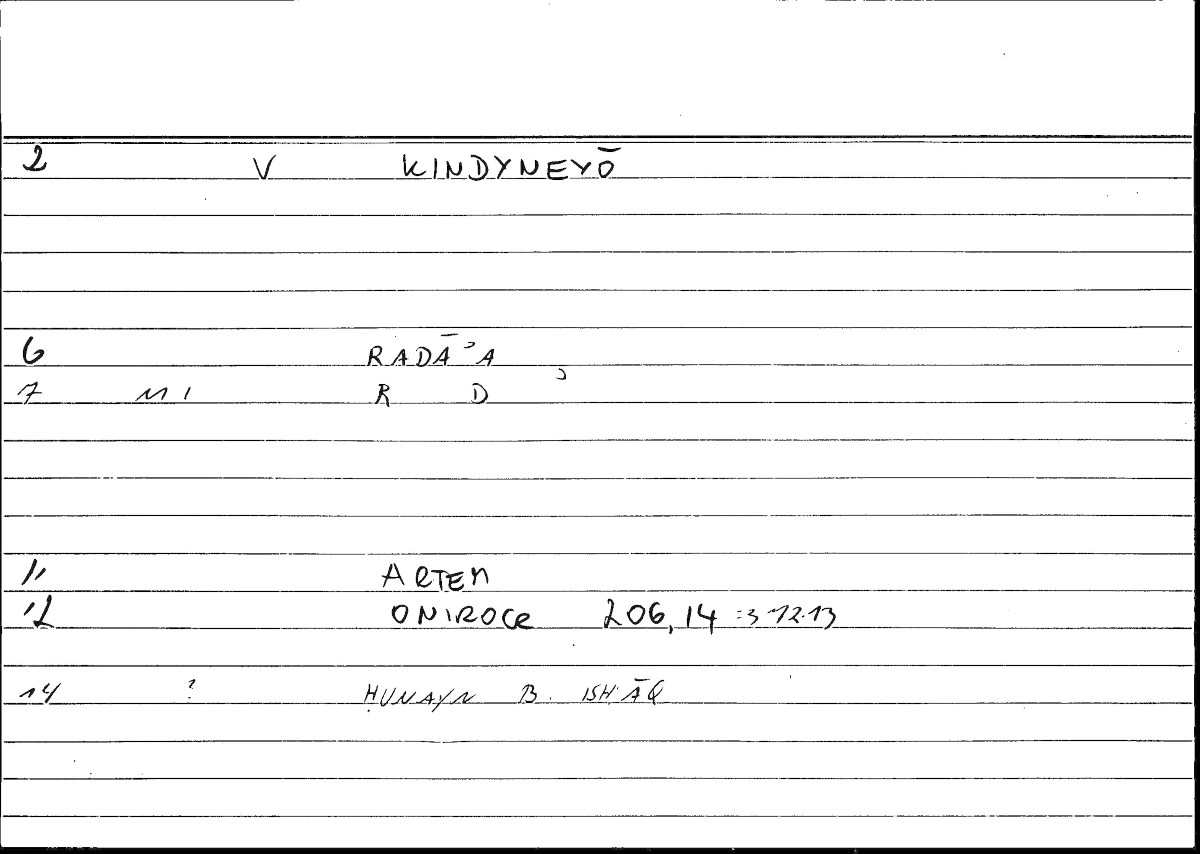 2 V KINDYNEYŌ
6 RADĀʾA
7 MI R D ʾ
11 ARTEM
12 ONIROCR 206,14 = 312.13
14 ? ḤUNAYN B. ISḤĀQ